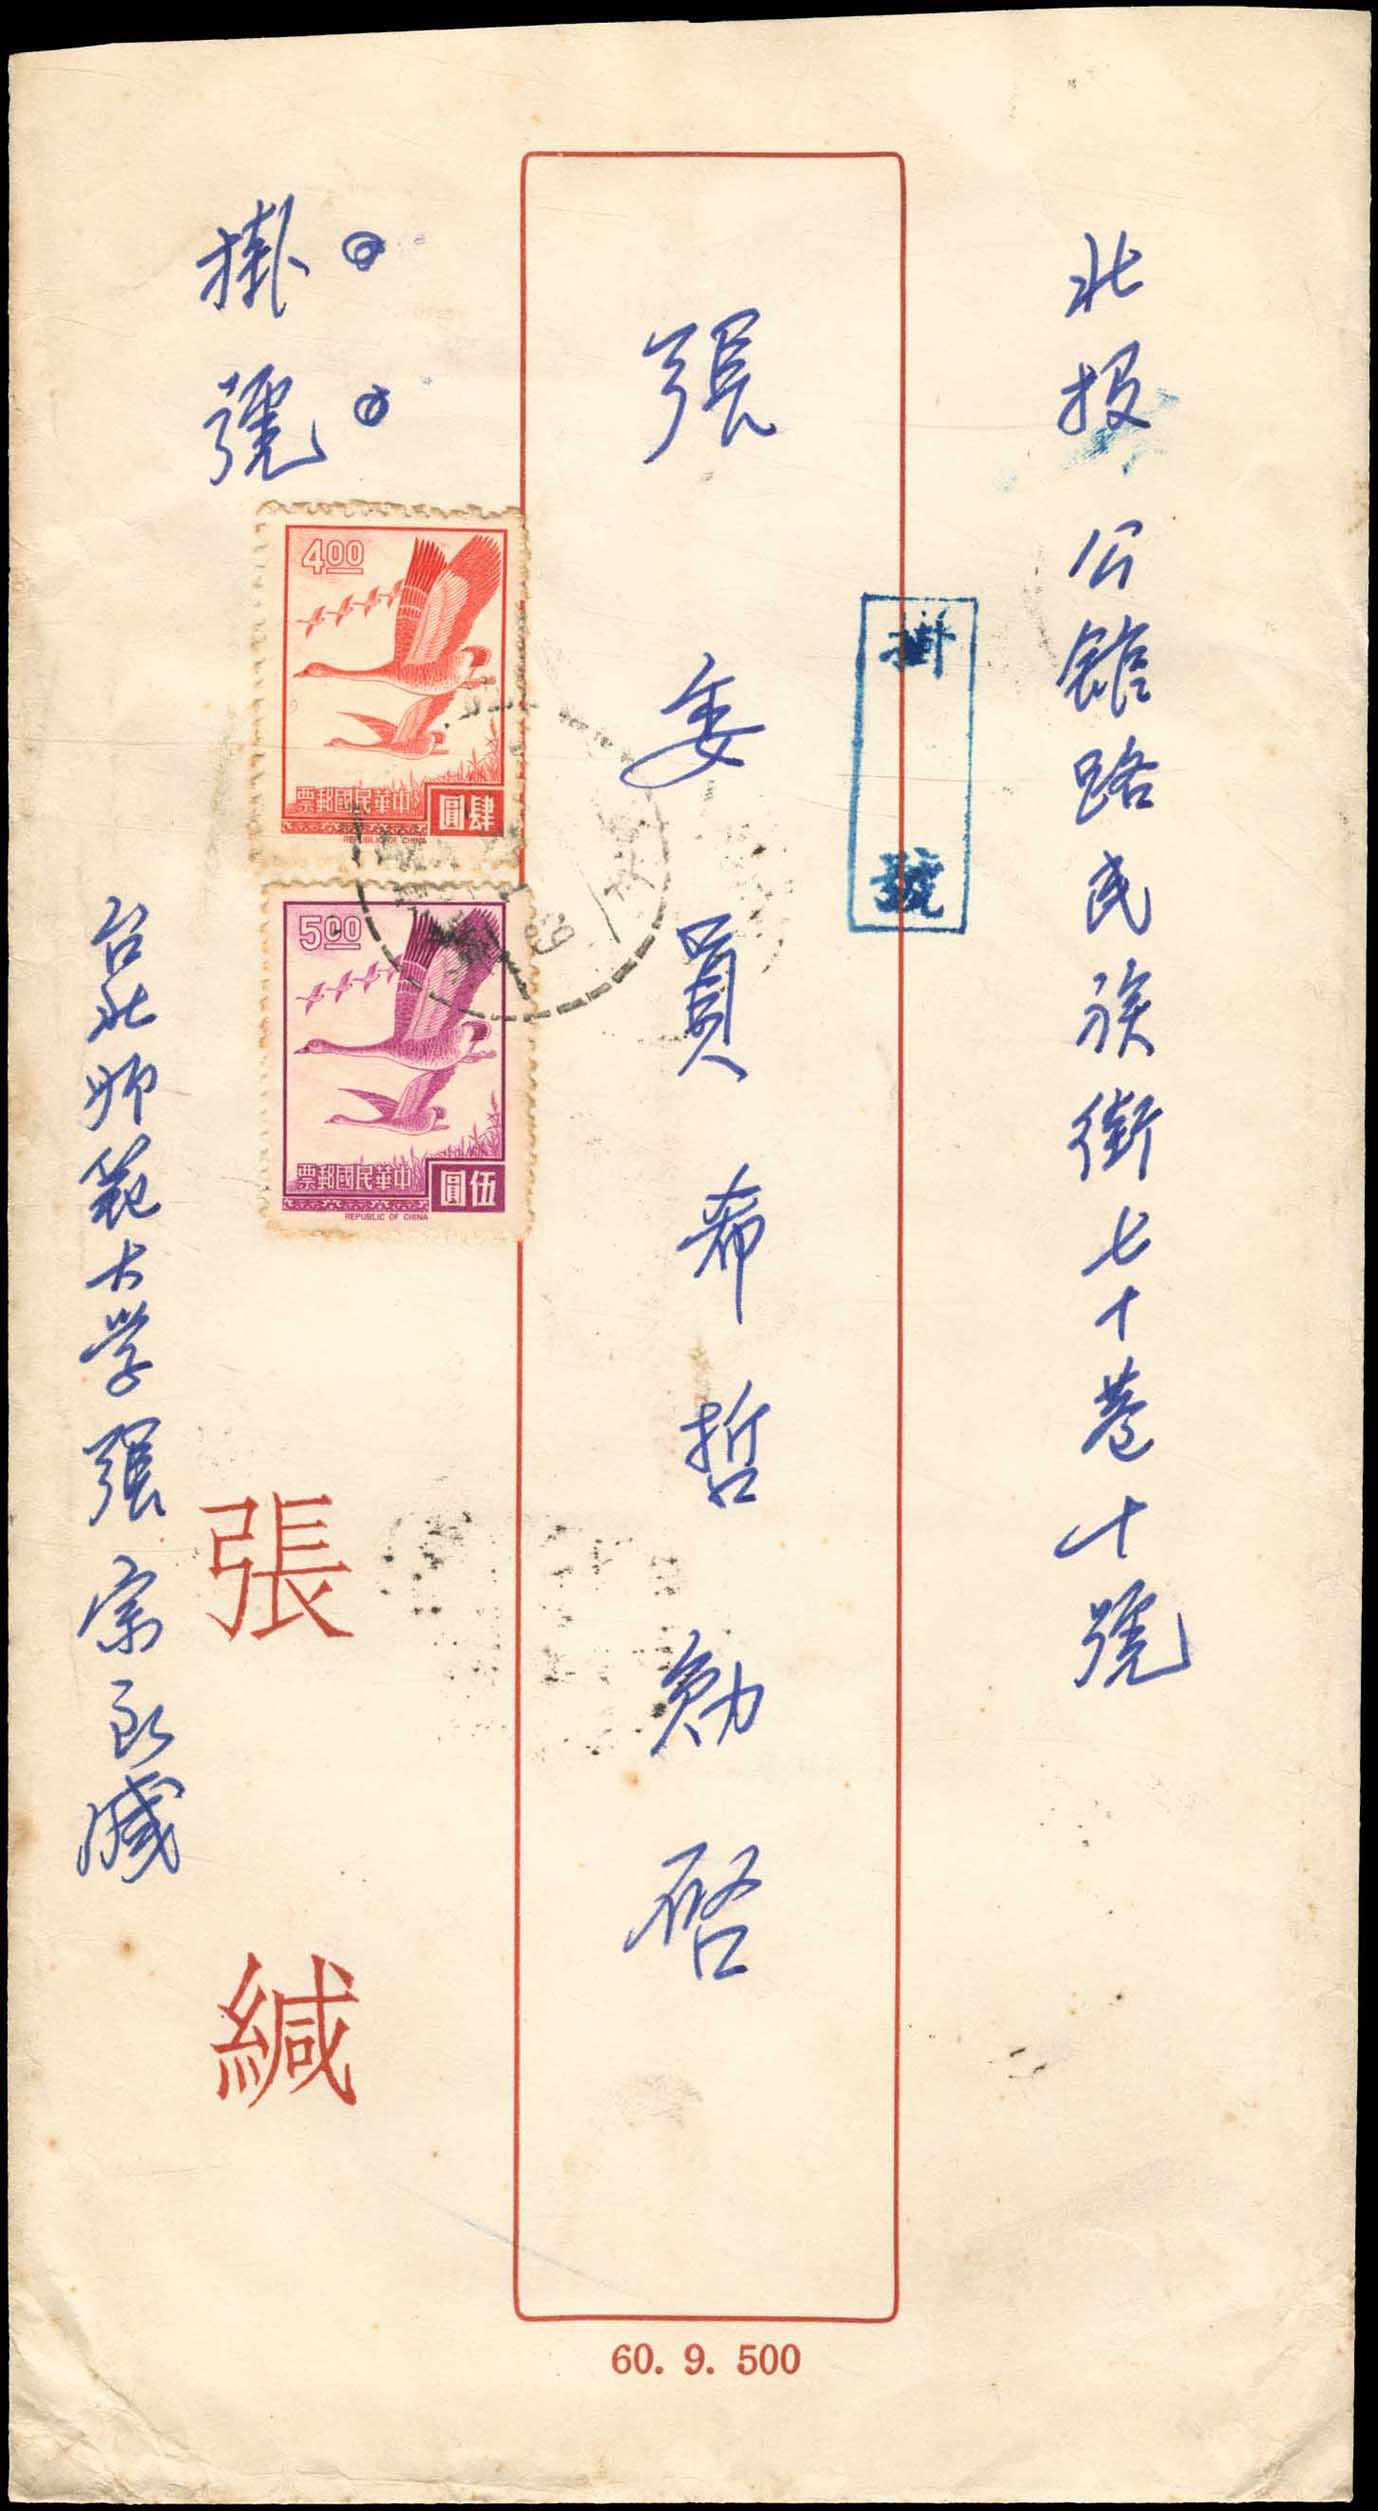 北投公館路民族街七十巷十號
掛號
張委員希哲勛啓
掛號
4.00
中華民國郵票
肆圓
REPUBLIC OF CHINA
5.00
中華民國郵票
伍圓
REPUBLIC OF CHINA
張緘
台北師範大学張宗良緘
60. 9. 500